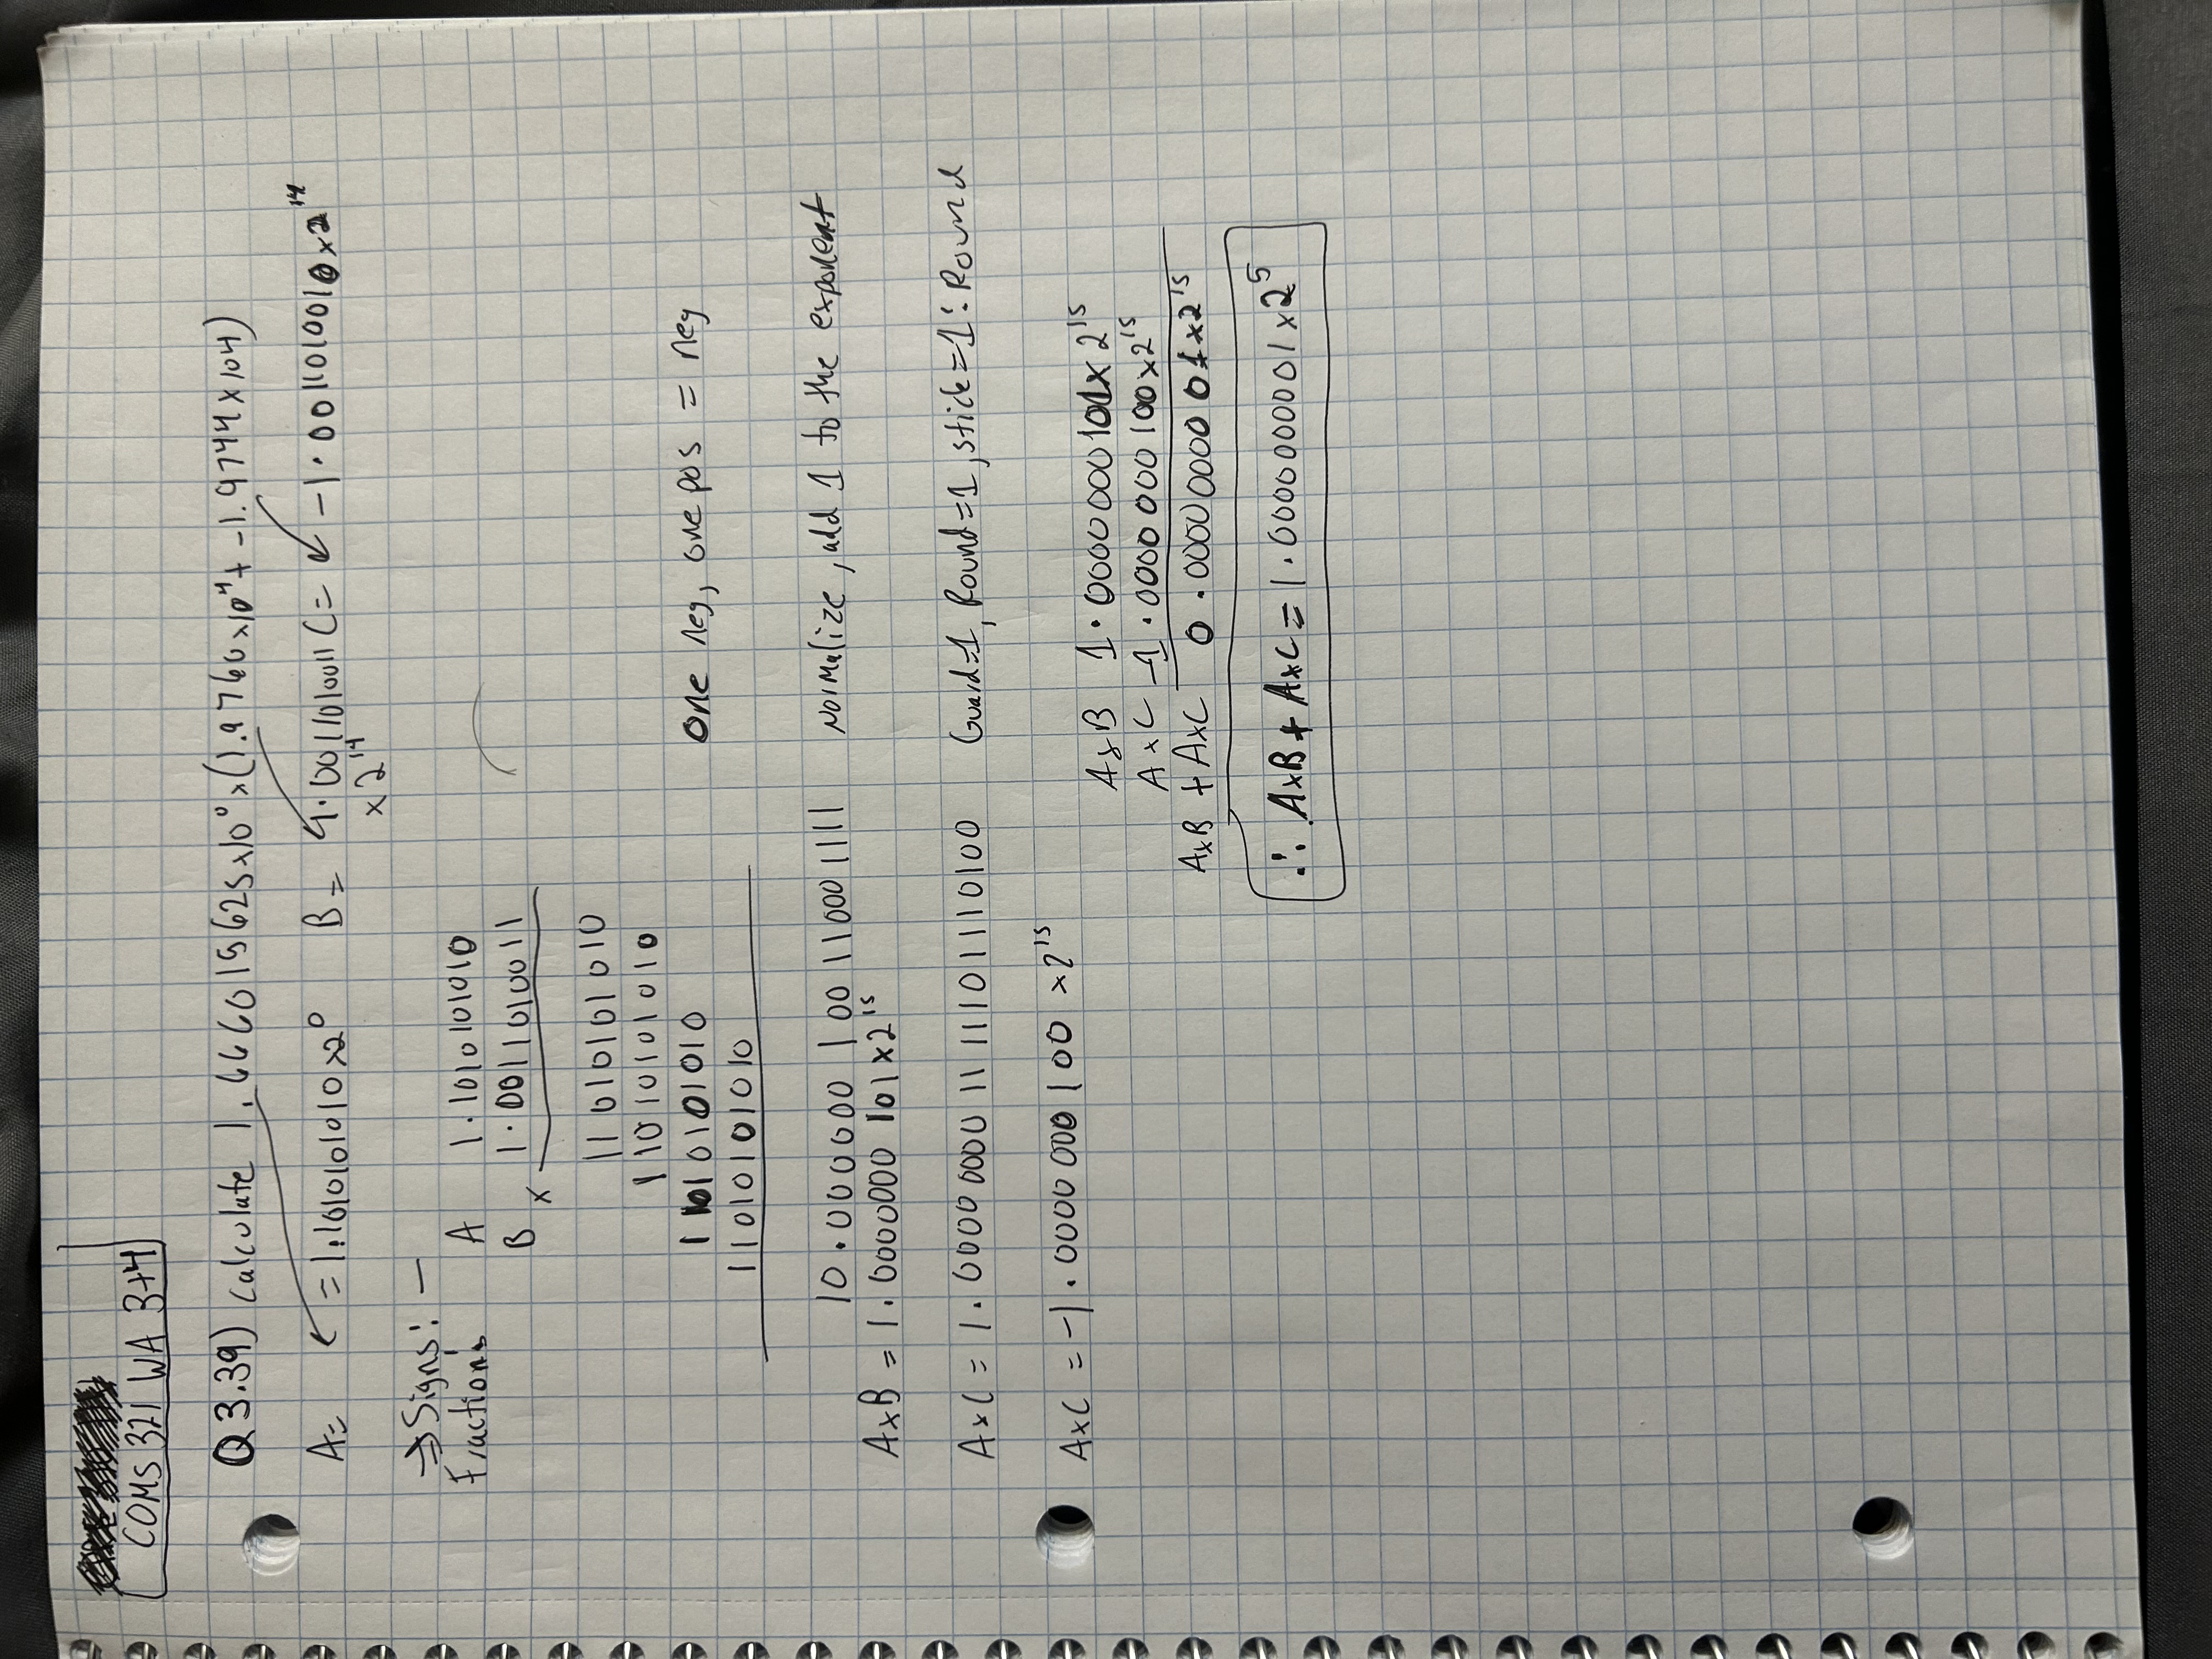 COMS 321 WA 3+4
Q 3.39) Calculate 1.666015625x10⁰x(1.9760x10⁴+ -1.9744x104)
A= = 1.1010101010x2⁰ B= 1.0011010011 C= -1.0011010010x2¹⁴
x2¹⁴
⇒Signs: -
Fractions A 1.1010101010
B x 1.0011010011
11010101010
11010101010
11010101010 one neg, one pos = neg
11010101010
10.00000010011000 1111 Normalize, add 1 to the exponent
AxB = 1.0000000101x2¹⁵
AxC = 1.0000000011111101110100 Guard=1, Round=1, stick=1: Round
AxC = -1.0000000100 x2¹⁵
AxB 1.0000000101x2¹⁵
AxC -1.0000000100x2¹⁵
AxB + AxC 0.0000000001x2¹⁵
∴ AxB + AxC = 1.0000000001x2⁵